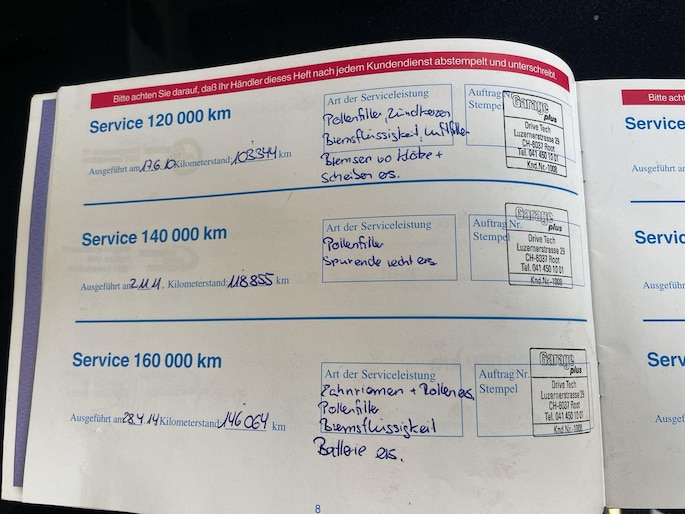 Bitte achten Sie darauf, daß Ihr Händler dieses Heft nach jedem Kundendienst abstempelt und unterschreibt.
Service 120 000 km
Art der Serviceleistung
Pollenfilter, Zündkerzen
Bremsflüssigkeit, Luftfilter
Bremsen vo Klötze +
Scheiben ers.
Auftrag
Stempel
Garage
plus
Drive Tech
Luzernerstrasse 29
CH-6037 Root
Tel. 041 450 10 01
Knd.Nr.-1008
Ausgeführt am 17.6.10 Kilometerstand: 103344 km
Service 140 000 km
Art der Serviceleistung
Pollenfilter
Spurende recht ers
Auftrag Nr.
Stempel
Garage
plus
Drive Tech
Luzernerstrasse 29
CH-6037 Root
Tel. 041 450 10 01
Knd.Nr.-1008
Ausgeführt am 2.11.11. Kilometerstand: 118855 km
Service 160 000 km
Art der Serviceleistung
Zahnriemen + Rollen ers.
Pollenfilter
Bremsflüssigkeit
Batterie ers.
Auftrag Nr.
Stempel
Garage
plus
Drive Tech
Luzernerstrasse 29
CH-6037 Root
Tel. 041 450 10 01
Knd.Nr.-1008
Ausgeführt am 28.4.14 Kilometerstand: 146064 km
8
Bitte ach
Servic
Ausgeführ
Servic
Ausgeführ
Serv
Ausgefü